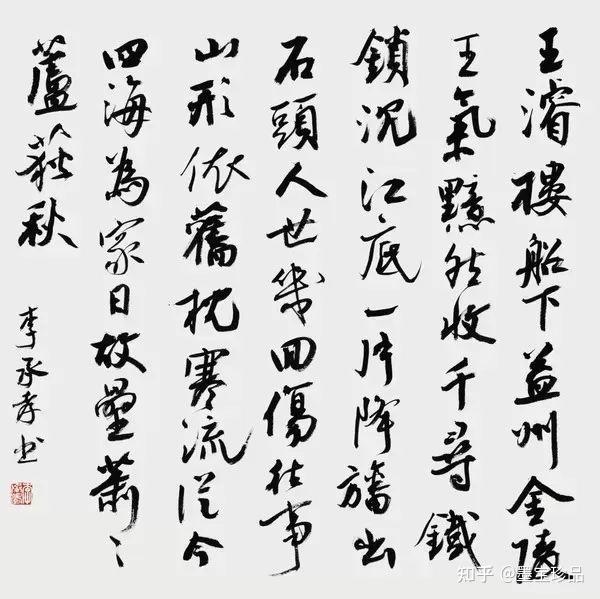 王濬樓船下益州金陵
王氣黯然收千尋鐵
鎖沉江底一片降旛出
石頭人世幾回傷往事
山形依舊枕寒流從今
四海為家日故壘蕭〻
蘆荻秋
李承孝书
知乎 @墨宝珍品